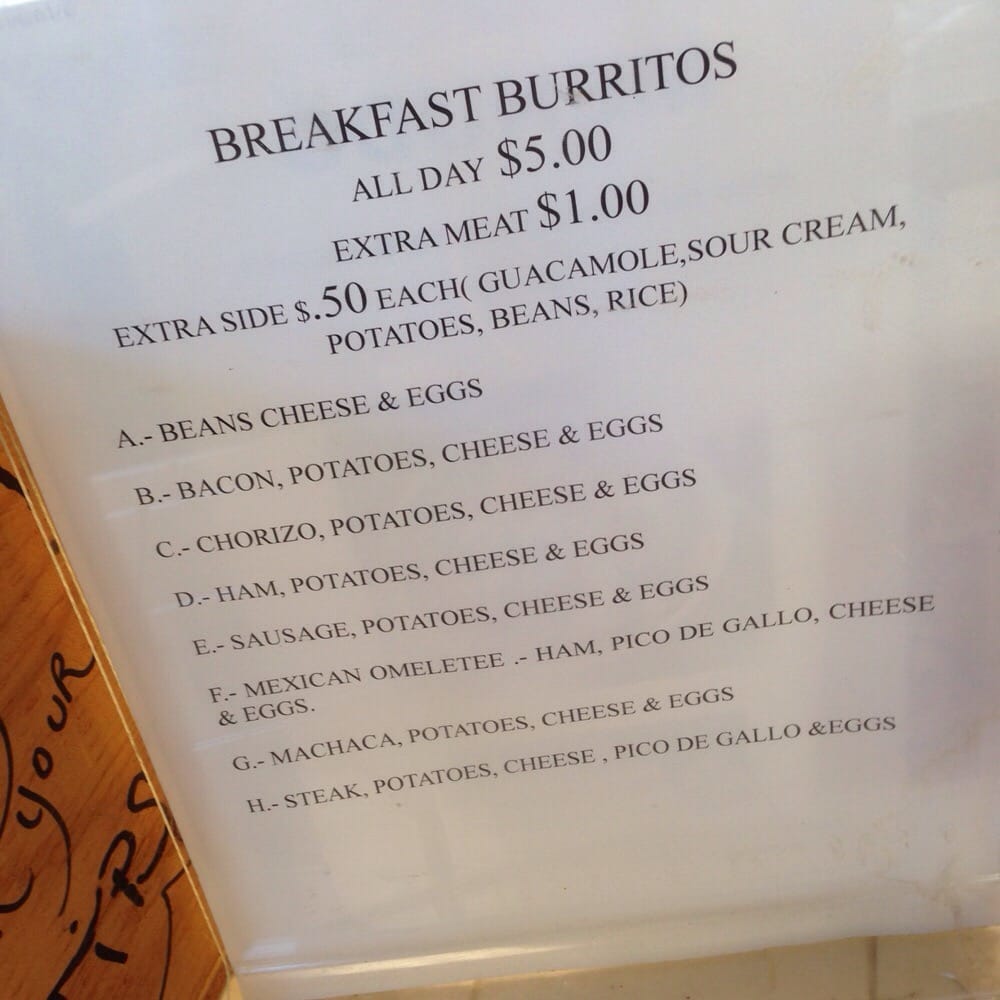 BREAKFAST BURRITOS
ALL DAY $5.00
EXTRA MEAT $1.00
EXTRA SIDE $.50 EACH( GUACAMOLE,SOUR CREAM,
POTATOES, BEANS, RICE)
A.- BEANS CHEESE & EGGS
B.- BACON, POTATOES, CHEESE & EGGS
C.- CHORIZO, POTATOES, CHEESE & EGGS
D.- HAM, POTATOES, CHEESE & EGGS
E.- SAUSAGE, POTATOES, CHEESE & EGGS
F.- MEXICAN OMELETEE .- HAM, PICO DE GALLO, CHEESE
& EGGS.
G.- MACHACA, POTATOES, CHEESE & EGGS
H.- STEAK, POTATOES, CHEESE , PICO DE GALLO &EGGS
YOUR